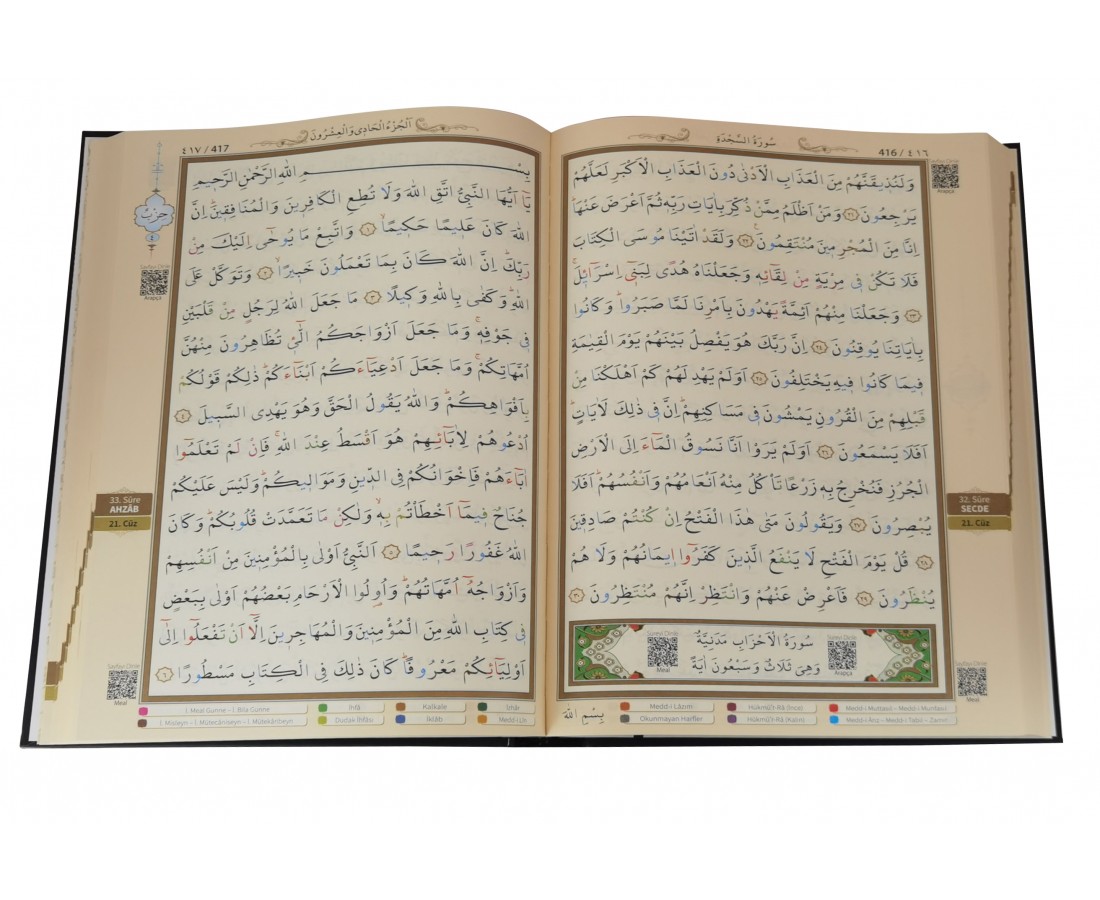 سُورَةُ السَّجْدَةِ
416 / ٤١٦
وَلَنُذ۪يقَنَّهُمْ مِنَ الْعَذَابِ الْاَدْنٰى دُونَ الْعَذَابِ الْاَكْبَرِ لَعَلَّهُمْ
يَرْجِعُونَ ﴿٢١﴾ وَمَنْ اَظْلَمُ مِمَّنْ ذُكِّرَ بِاٰيَاتِ رَبِّه۪ ثُمَّ اَعْرَضَ عَنْهَاۜ
اِنَّا مِنَ الْمُجْرِم۪ينَ مُنْتَقِمُونَ۟ ﴿٢٢﴾ وَلَقَدْ اٰتَيْنَا مُوسَى الْكِتَابَ
فَلَا تَكُنْ ف۪ي مِرْيَةٍ مِنْ لِقَٓائِه۪ وَجَعَلْنَاهُ هُدًى لِبَن۪ٓي اِسْرَٓائ۪لَۚ
﴿٢٣﴾ وَجَعَلْنَا مِنْهُمْ اَئِمَّةً يَهْدُونَ بِاَمْرِنَا لَمَّا صَبَرُواۜ وَكَانُوا
بِاٰيَاتِنَا يُوقِنُونَ ﴿٢٤﴾ اِنَّ رَبَّكَ هُوَ يَفْصِلُ بَيْنَهُمْ يَوْمَ الْقِيٰمَةِ
ف۪يمَا كَانُوا ف۪يهِ يَخْتَلِفُونَ ﴿٢٥﴾ اَوَلَمْ يَهْدِ لَهُمْ كَمْ اَهْلَكْنَا مِنْ
قَبْلِهِمْ مِنَ الْقُرُونِ يَمْشُونَ ف۪ي مَسَاكِنِهِمْۜ اِنَّ ف۪ي ذٰلِكَ لَاٰيَاتٍۜ
اَفَلَا يَسْمَعُونَ ﴿٢٦﴾ اَوَلَمْ يَرَوْا اَنَّا نَسُوقُ الْمَٓاءَ اِلَى الْاَرْضِ
الْجُرُزِ فَنُخْرِجُ بِه۪ زَرْعًا تَأْكُلُ مِنْهُ اَنْعَامُهُمْ وَاَنْفُسُهُمْۜ اَفَلَا
يُبْصِرُونَ ﴿٢٧﴾ وَيَقُولُونَ مَتٰى هٰذَا الْفَتْحُ اِنْ كُنْتُمْ صَادِق۪ينَ
﴿٢٨﴾ قُلْ يَوْمَ الْفَتْحِ لَا يَنْفَعُ الَّذ۪ينَ كَفَرُٓوا ا۪يمَانُهُمْ وَلَا هُمْ
يُنْظَرُونَ ﴿٢٩﴾ فَاَعْرِضْ عَنْهُمْ وَانْتَظِرْ اِنَّهُمْ مُنْتَظِرُونَ ﴿٣٠﴾
سُورَةُ الْاَحْزَابِ مَدَنِيَّةٌ
وَهِيَ ثَلَاثٌ وَسَبْعُونَ اٰيَةً
Sureyi Dinle
Meal
Sureyi Dinle
Arapça
Sayfayı Dinle
Arapça
32. Sûre
SECDE
21. Cüz
Sayfayı Dinle
Meal
بِسْمِ اللّٰهِ
Medd-i Lâzım
Hükmü'r-Râ (İnce)
Medd-i Muttasıl – Medd-i Munfasıl
Okunmayan Harfler
Hükmü'r-Râ (Kalın)
Medd-i Ârız – Medd-i Tabiî – Zamir
اَلْجُزْءُ الْحَادِى وَالْعِشْرُونَ
٤١٧ / 417
بِسْمِ اللّٰهِ الرَّحْمٰنِ الرَّح۪يمِ
يَٓا اَيُّهَا النَّبِيُّ اتَّقِ اللّٰهَ وَلَا تُطِعِ الْكَافِر۪ينَ وَالْمُنَافِق۪ينَۜ اِنَّ
اللّٰهَ كَانَ عَل۪يمًا حَك۪يمًاۙ ﴿١﴾ وَاتَّبِعْ مَا يُوحٰٓى اِلَيْكَ مِنْ
رَبِّكَۜ اِنَّ اللّٰهَ كَانَ بِمَا تَعْمَلُونَ خَب۪يرًاۙ ﴿٢﴾ وَتَوَكَّلْ عَلَى
اللّٰهِۜ وَكَفٰى بِاللّٰهِ وَك۪يلًا ﴿٣﴾ مَا جَعَلَ اللّٰهُ لِرَجُلٍ مِنْ قَلْبَيْنِ
ف۪ي جَوْفِه۪ۚ وَمَا جَعَلَ اَزْوَاجَكُمُ الّٰٓـ۪ٔي تُظَاهِرُونَ مِنْهُنَّ
اُمَّهَاتِكُمْۚ وَمَا جَعَلَ اَدْعِيَٓاءَكُمْ اَبْنَٓاءَكُمْۜ ذٰلِكُمْ قَوْلُكُمْ
بِاَفْوَاهِكُمْۜ وَاللّٰهُ يَقُولُ الْحَقَّ وَهُوَ يَهْدِي السَّب۪يلَ ﴿٤﴾
اُدْعُوهُمْ لِاٰبَٓائِهِمْ هُوَ اَقْسَطُ عِنْدَ اللّٰهِۚ فَاِنْ لَمْ تَعْلَمُٓوا
اٰبَٓاءَهُمْ فَاِخْوَانُكُمْ فِي الدّ۪ينِ وَمَوَال۪يكُمْۜ وَلَيْسَ عَلَيْكُمْ
جُنَاحٌ ف۪يمَٓا اَخْطَأْتُمْ بِه۪ۙ وَلٰكِنْ مَا تَعَمَّدَتْ قُلُوبُكُمْۜ وَكَانَ
اللّٰهُ غَفُورًا رَح۪يمًا ﴿٥﴾ اَلنَّبِيُّ اَوْلٰى بِالْمُؤْمِن۪ينَ مِنْ اَنْفُسِهِمْ
وَاَزْوَاجُهُٓ اُمَّهَاتُهُمْۜ وَاُو۬لُوا الْاَرْحَامِ بَعْضُهُمْ اَوْلٰى بِبَعْضٍ
ف۪ي كِتَابِ اللّٰهِ مِنَ الْمُؤْمِن۪ينَ وَالْمُهَاجِر۪ينَ اِلَّٓا اَنْ تَفْعَلُٓوا اِلٰٓى
اَوْلِيَٓائِكُمْ مَعْرُوفًاۜ كَانَ ذٰلِكَ فِي الْكِتَابِ مَسْطُورًا ﴿٦﴾
حِزْبُ
٤
Sayfayı Dinle
Arapça
33. Sûre
AHZÂB
21. Cüz
Sayfayı Dinle
Meal
İ. Meal Gunne – İ. Bila Gunne
İhfâ
Kalkale
İzhâr
İ. Misleyn – İ. Mütecâniseyn – İ. Mütekâribeyn
Dudak İhfâsı
İklâb
Medd-i Lîn